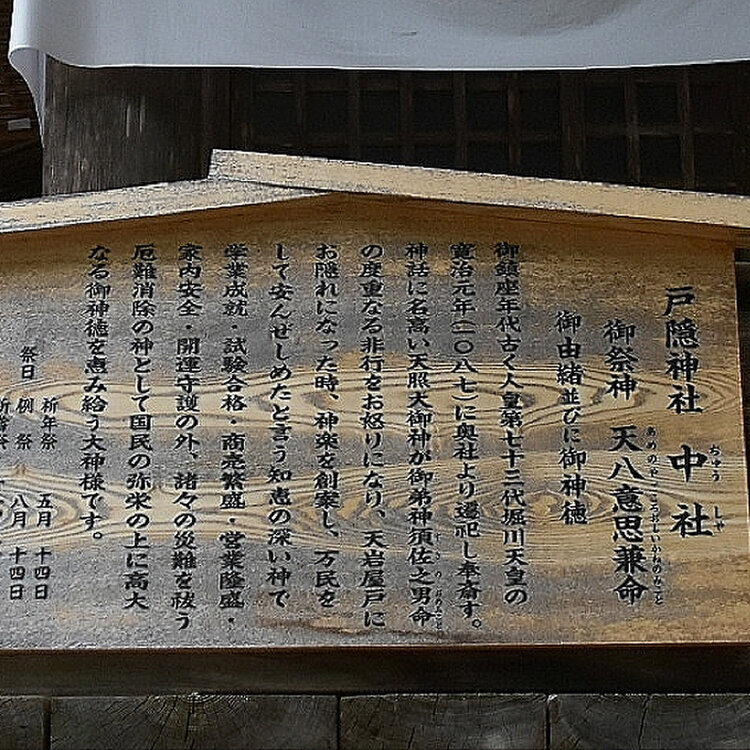 戸隠神社 中社
ちゅう しゃ
御祭神 天八意思兼命
御由緒並びに御神徳
御鎮座年代古く人皇第七十三代堀川天皇の
寛治元年(一〇八七)に奥社より遷祀し奉斎す。
神話に名高い天照大御神が御弟神須佐之男命
の度重なる非行をお怒りになり、天岩屋戸に
お隠れになった時、神楽を創案し、万民を
して安んぜしめたと言う知恵の深い神で
学業成就・試験合格・商売繁盛・営業隆盛・
家内安全・開運守護の外、諸々の災難を祓う
厄難消除の神として国民の弥栄の上に高大
なる御神徳を恵み給う大神様です。
祭日 祈年祭 五月 十四日
例祭 八月 十四日